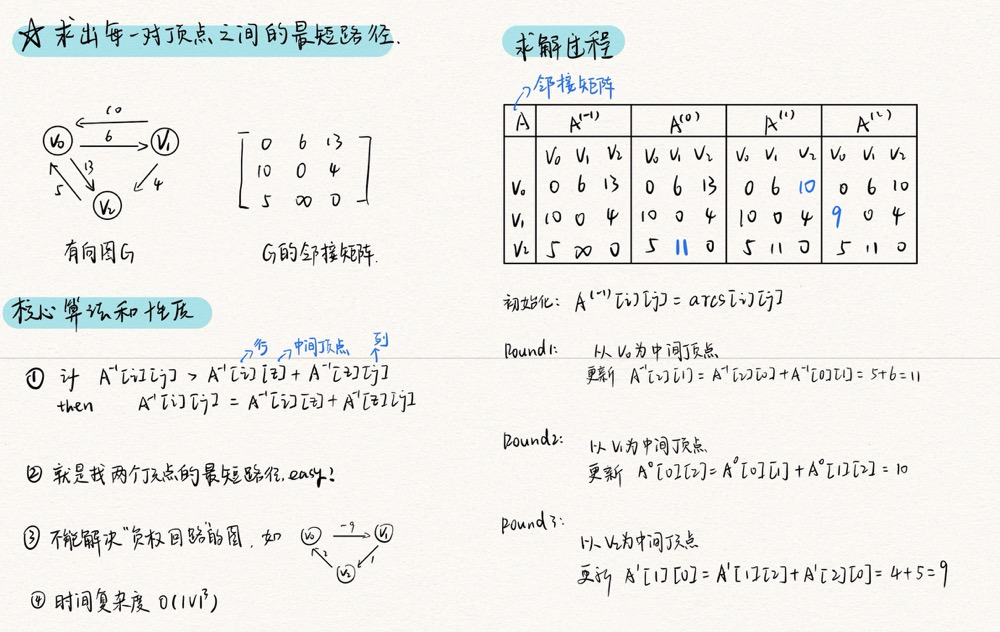 ☆ 求出每一对顶点之间的最短路径.
10
V₀ 6 V₁
13
5 4
V₂
有向图G
0 6 13
10 0 4
5 ∞ 0
G的邻接矩阵.
核心算法和性质
行 中间顶点 列
① if A⁻¹[i][j] > A⁻¹[i][z] + A⁻¹[z][j]
then A⁻¹[i][j] = A⁻¹[i][z] + A⁻¹[z][j]
② 就是找两个顶点的最短路径, easy!
③ 不能解决"负权回路"的图, 如
V₀ -9 V₁
2 1
V₂
④ 时间复杂度 O(|V|³)
求解过程
邻接矩阵
A A⁽⁻¹⁾ A⁽⁰⁾ A⁽¹⁾ A⁽²⁾
V₀ V₁ V₂ V₀ V₁ V₂ V₀ V₁ V₂ V₀ V₁ V₂
V₀ 0 6 13 0 6 13 0 6 10 0 6 10
V₁ 10 0 4 10 0 4 10 0 4 9 0 4
V₂ 5 ∞ 0 5 11 0 5 11 0 5 11 0
初始化: A⁽⁻¹⁾[i][j] = arcs[i][j]
Round1:
以V₀为中间顶点
更新 A⁻¹[2][1] = A⁻¹[2][0] + A⁻¹[0][1] = 5+6=11
Round2:
以V₁为中间顶点
更新 A⁰[0][2] = A⁰[0][1] + A⁰[1][2] = 10
Round3:
以V₂为中间顶点
更新 A¹[1][0] = A¹[1][2] + A¹[2][0] = 4+5=9